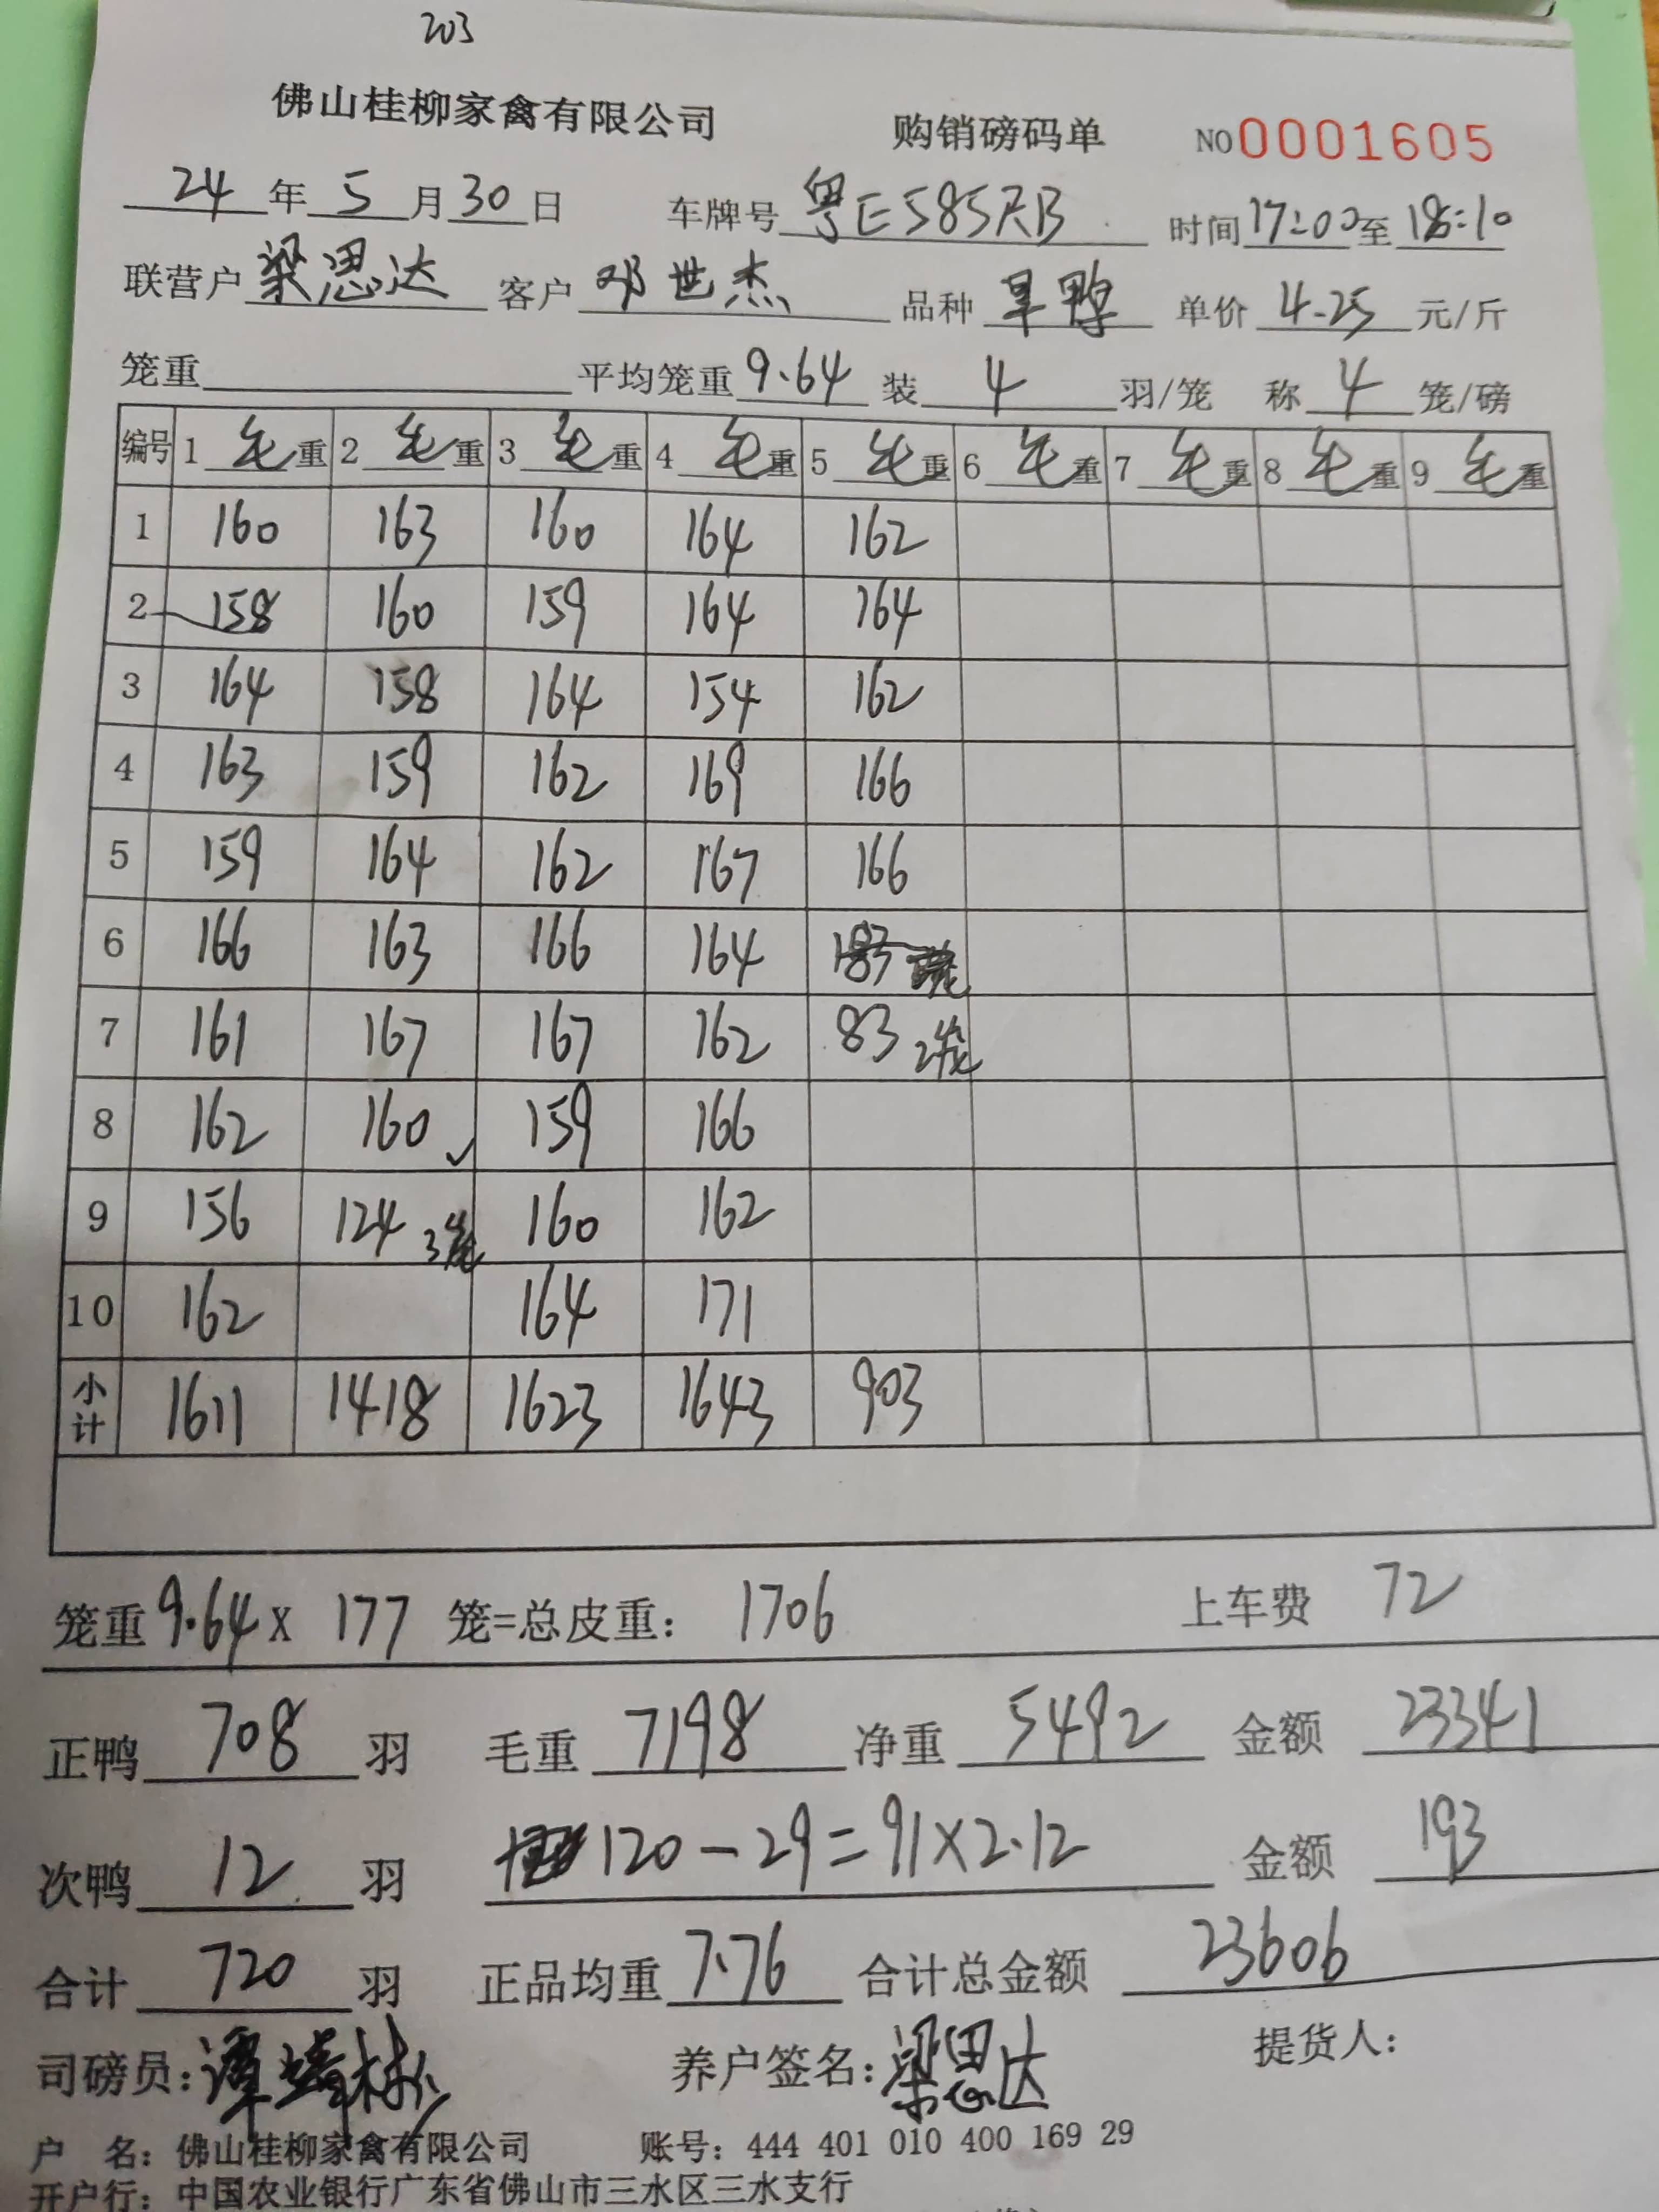 203
佛山桂柳家禽有限公司 购销磅码单 NO 0001605
24 年 5 月 30 日 车牌号 粤E585RB 时间 17:00 至 18:10
联营户 梁思达 客户 邓世杰 品种 旱鸭 单价 4.25 元/斤
笼重 平均笼重 9.64 装 4 羽/笼 称 4 笼/磅
编号 1 毛重 2 毛重 3 毛重 4 毛重 5 毛重 6 毛重 7 毛重 8 毛重 9 毛重
1 160 163 160 164 162
2 158 160 159 164 164
3 164 158 164 154 162
4 163 159 162 169 166
5 159 164 162 167 166
6 166 163 166 164 183
7 161 167 167 162 83 2笼
8 162 160 ✓ 159 166
9 156 124 3笼 160 162
10 162 164 171
小计 1611 1418 1623 1643 903
笼重 9.64 X 177 笼=总皮重: 1706 上车费 72
正鸭 708 羽 毛重 7198 净重 5492 金额 23341
次鸭 12 羽 120-29=91×2.12 金额 193
合计 720 羽 正品均重 7.76 合计总金额 23606
司磅员: 养户签名: 梁思达 提货人:
户 名: 佛山桂柳家禽有限公司 账号: 444 401 010 400 169 29
开户行: 中国农业银行广东省佛山市三水区三水支行